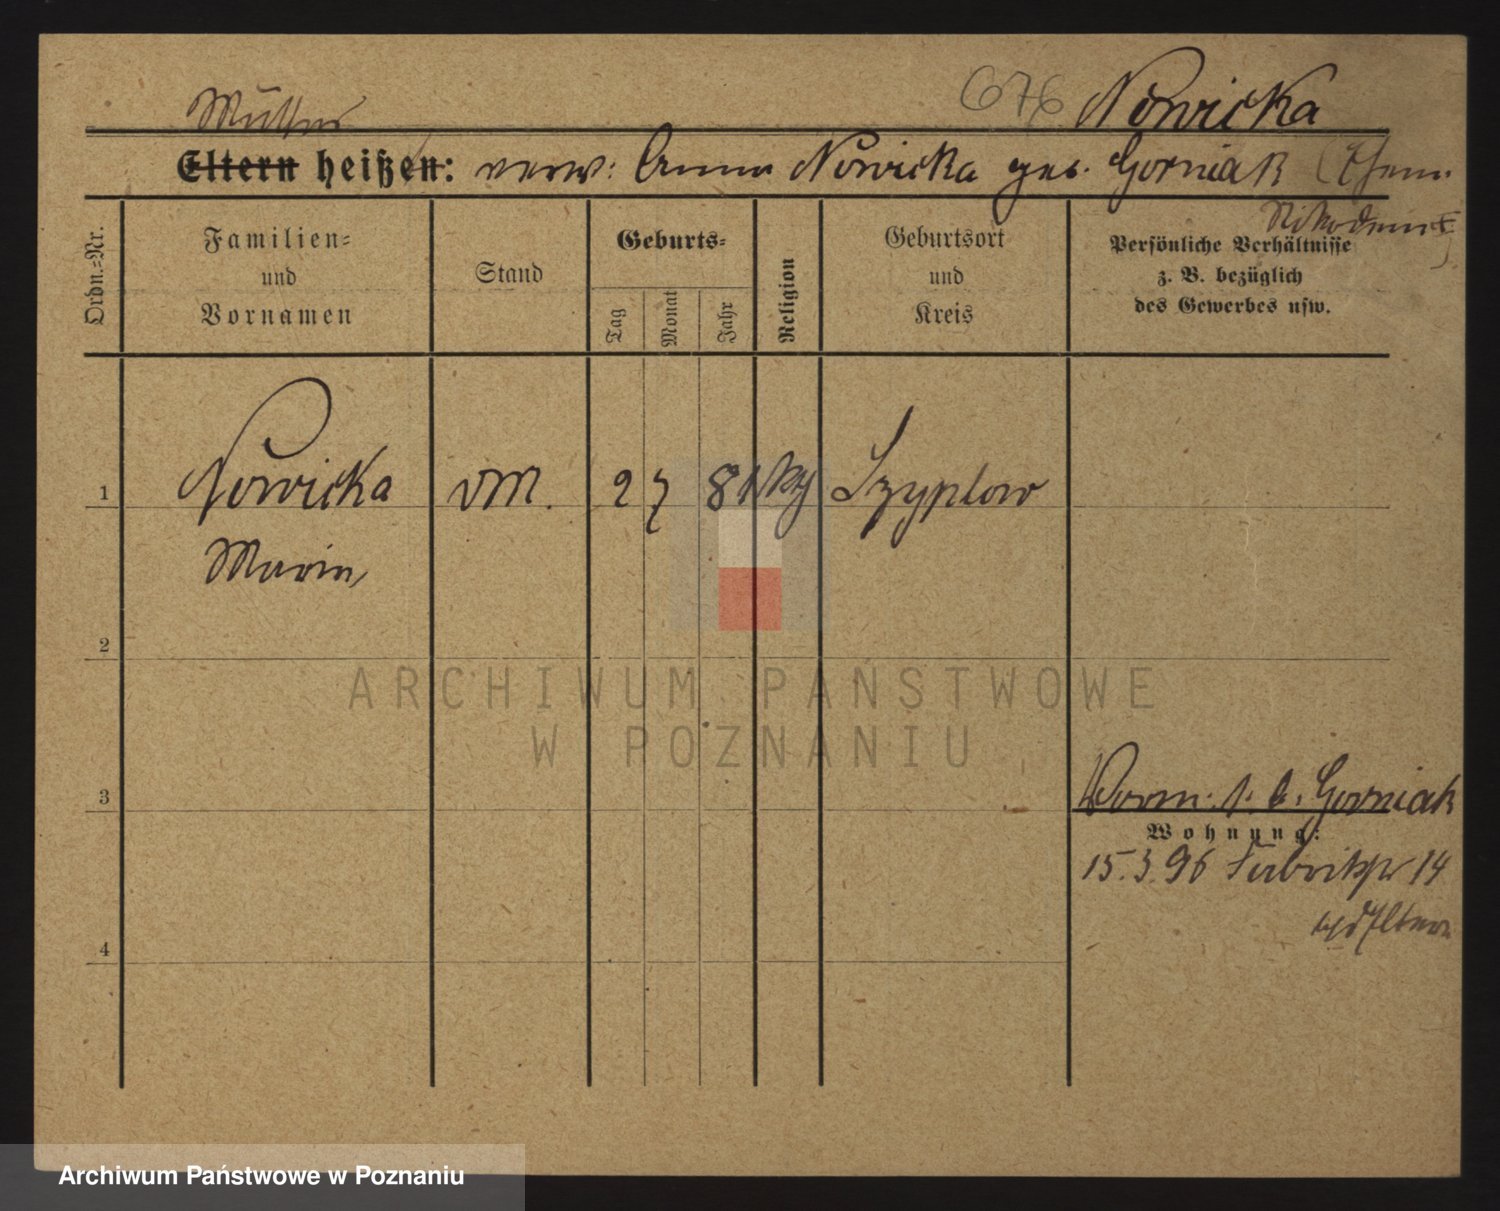 676 Nowicka
Mutter
Eltern heißen: verw: Anna Nowicka geb. Gorniak (Ehem.
Nikodem)
Ordn.-Nr.
Familien-
und
Vornamen
Stand
Geburts-
Tag
Monat
Jahr
Religion
Geburtsort
und
Kreis
Persönliche Verhältnisse
z. B. bezüglich
des Gewerbes usw.
1 Nowicka oM. 2 7 81 Szyplow
Maria
2
3
Vorm: Gorniak
Wohnung:
15.3.96 14
4
ARCHIWUM PAŃSTWOWE
W POZNANIU
Archiwum Państwowe w Poznaniu